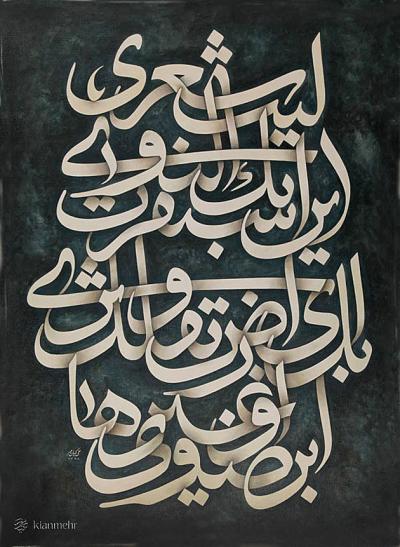 ليت شعري
این استقرت بك النوى
بل اي ارض تقلك او ثرى
ابرضوى او غيرها
kianmehr